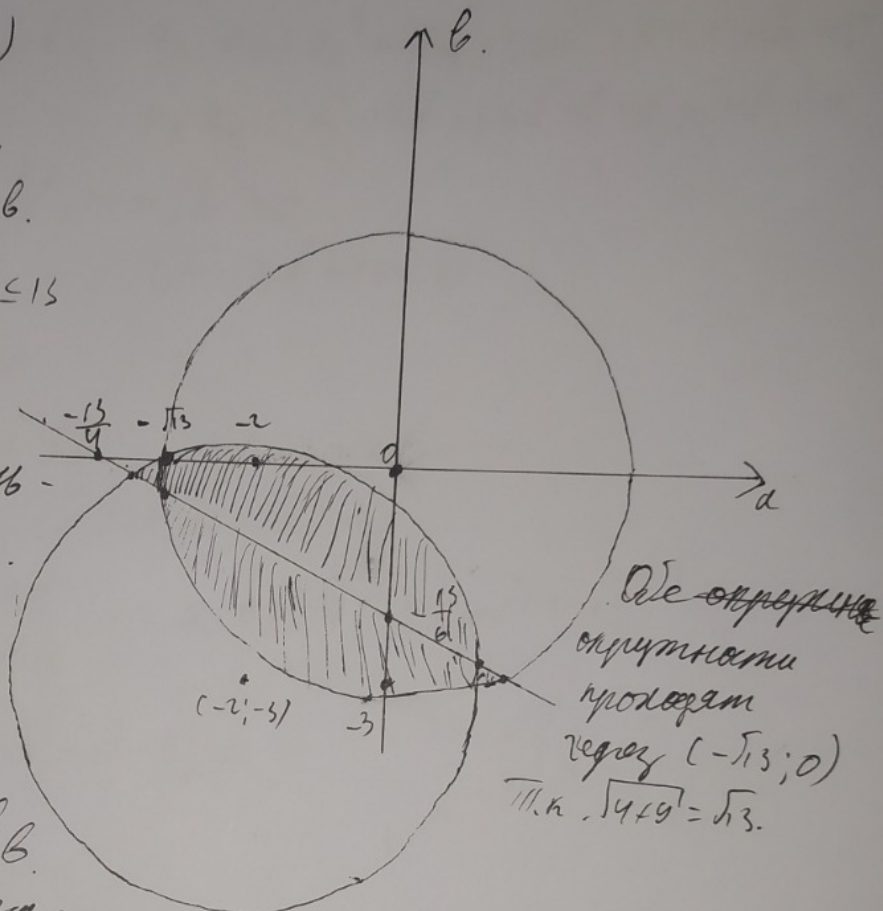 )
b.
b.
≤ 13
-13/4 - √13 -2
0
a
-13/6
(-2;-3)
-3
Обе окружно
окружности
проходят
через (-√13; 0)
Т.к. √4+9 = √13.
b